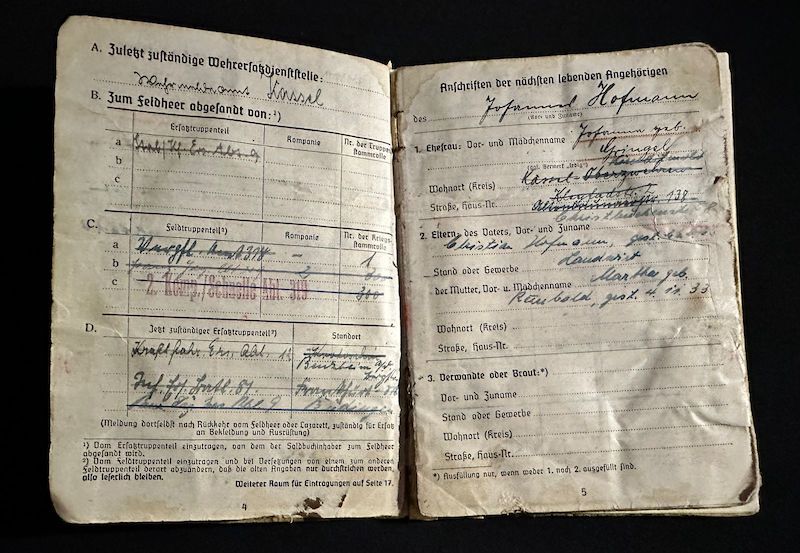 A. Zuletzt zuständige Wehrersatzdienststelle:
Kassel
B. Zum Feldheer abgesandt von:¹)
Ersatztruppenteil Kompanie Nr. der Truppenstammrolle
a
b
c
C.
Feldtruppenteil²) Kompanie Nr. der Kriegsstammrolle
a 1
b 2
c 2. Komp./Schnelle Abt. 319 300
D.
Jetzt zuständiger Ersatztruppenteil²) Standort
Kraftfahr. Ers. Abt.
(Meldung dortselbst nach Rückkehr vom Feldheer oder Lazarett, zuständig für Ersatz
an Bekleidung und Ausrüstung)
¹) Vom Ersatztruppenteil einzutragen, von dem der Soldbuchinhaber zum Feldheer
abgesandt wird.
²) Vom Feldtruppenteil einzutragen und bei Versetzungen von einem zum anderen
Feldtruppenteil derart abzuändern, daß die alten Angaben nur durchstrichen werden,
also leserlich bleiben.
Weiterer Raum für Eintragungen auf Seite 17.
4
Anschriften der nächsten lebenden Angehörigen
des Johannes Hofmann
(Vor- und Zuname)
1. Ehefrau: Vor- und Mädchenname Johanna geb.
(ggf. Vermerk „ledig")
Wohnort (Kreis) Kassel-Oberzwehren
Straße, Haus-Nr. 137
2. Eltern: des Vaters, Vor- und Zuname
Christian Hofmann, gest.
Stand oder Gewerbe Landwirt
der Mutter, Vor- u. Mädchenname Martha geb.
Raubold, gest. 33
Wohnort (Kreis)
Straße, Haus-Nr.
3. Verwandte oder Braut:*)
Vor- und Zuname
Stand oder Gewerbe
Wohnort (Kreis)
Straße, Haus-Nr.
*) Ausfüllung nur, wenn weder 1. noch 2. ausgefüllt sind.
5